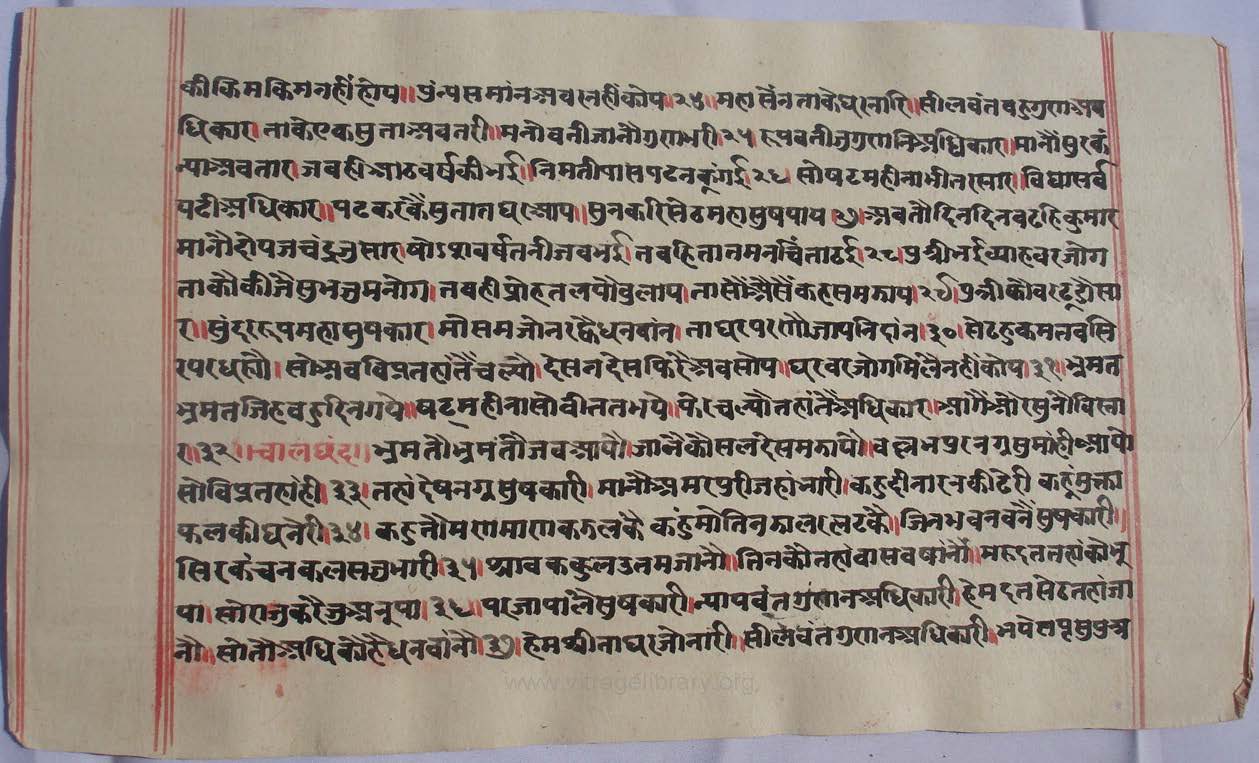 की किमकिमनहीं होय॥ पुंन्यसमांनअवरनहींकोय २४॥ महासैंनताकेघरनारि॥ सीलवंतबहुगुणअव
धिकार॥ ताकेएकसुताअवतरी॥ मनोवतीजानौगुणभरी २५ रूपवतीजुगुणनिअधिकार॥ मानौंसुरकं
न्याअवतार जबहीआठवर्षकीभई॥ निमतीपासपढनकूंगई २६ सोषटमहीनाभीतरसार॥ विद्यासर्व
पढीअधिकार॥ पढकरकैंसुतातघरआय॥ सुनकरिसेठमहासुषपाय २७ अवतौदिनदिनबढहिकुमार
मानौदोयजचंद्रनुसार षोडशवर्षतनीजबभई तबहितातमनचिंताठई २८ पुत्रीभईव्याहवरजोग
ताकौकीजैसुभजुमनोग तबहीप्रोहतलयौबुलाय॥ तासौंऔसैंकहसमझाय २९ पुत्रीकौवरढूंढौसा
र॥ सुंदररूपमहासुषकार॥ मोसमजोनरह्वैधनवांन॥ ताघरपरणौजायनिदांन ३० सेठहुकमतबसि
रपरधरह्यौ॥ सोअबविप्रतहांतैंचल्यौ देसनदेसफिरैअबसोय॥ घरवरजोगमिलैनहीकोय ३१ भ्रमत
भ्रमतजिहबहुदिनगये॥ षटमहीनासोबीततभये॥ फेरचल्यौतहांतैंअधिकार॥ आगैंऔरसुनौविस्ता
र॥ ३२॥ चालछंद॥ भ्रमतौभ्रमंतौजबआयौ॥ जानैंकौसलदेसमझायौ॥ वल्लभपुरनगृसुमाही आयो
सोविप्रतहांही ३३ तहांदेषनगृसुषकारी॥ मानौअमरपुरीजहांभारी कहुदीनारनकीढेरी कहूंमुक्ता
फलकीघनेरी ३४ कहुनौमणमाणकझलकै कहूंमोतिनझालरलटकै॥ जिनभवनबनैंसुषकारी॥
सिरकंचनकलसजुभारी ३५ श्रावककुलउतमजानौ॥ तिनकौतहांवासवषांनौ॥ मरुदततहांकोभू
पा॥ सोराजुकरैजुअनूपा ३६ परजापालैसुषकारी॥ न्यायवंतगुणनअधिकारी हेमदतसेठतहांजा
नौ॥ सोतौअधिकौहैधनवांनौ ३७ हेमश्रीताघरजोनारी॥ सीलवंतगुणनअधिकारी॥
www.vitragelibrary.org